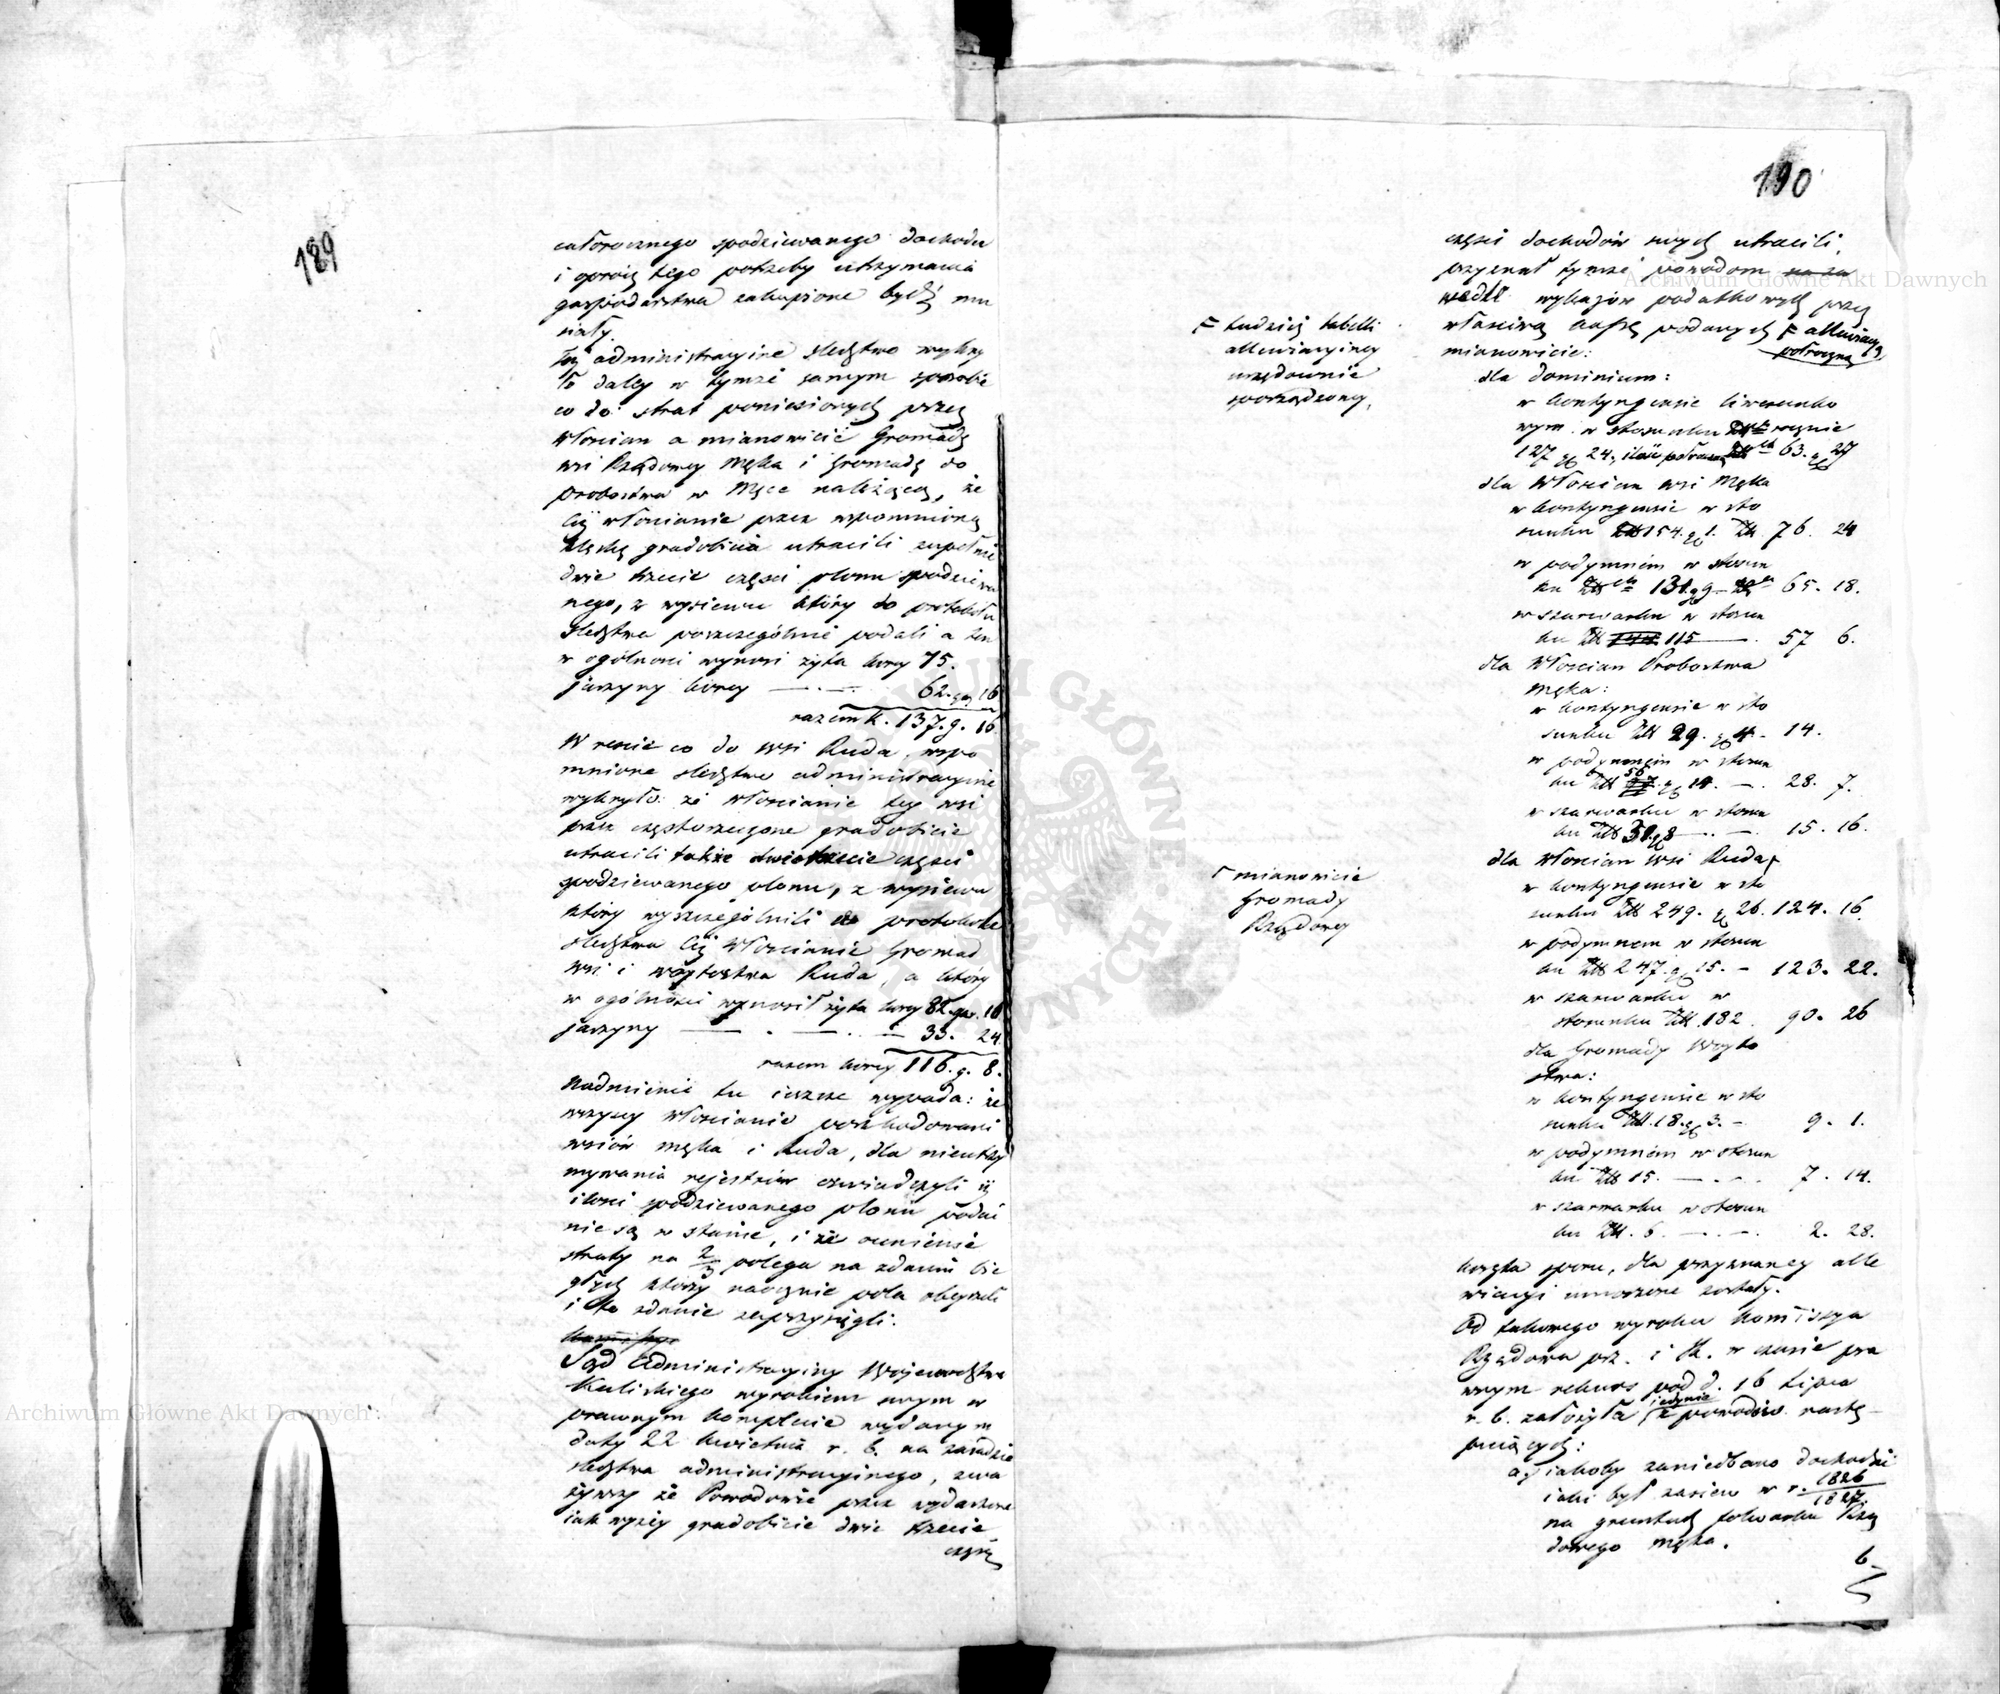 189
całorocznego spodziewanego dochodu
i oprócz tego potrzeby utrzymania
gospodarstwa zakupione bydź mu
siały.
Toż administracyine sledztwo wykry
ło daley w tymże samym sposobie
co do strat poniesionych przez
Włoscian a mianowicie Gromadę
wsi Rządowey Męka i Gromadę do
probostwa w Męce należącą, że
ciż włoscianie przez wspomnioną
klęskę gradobicia utracili zupełnie
dwie trzecie części plonu spodziewa
nego, z wysiewu który do protokołu
sledztwa poszczególnie podali a ten
w ogólnosci wynosi żyta korcy 75.
jarzyny korcy 62. gar 16
razem k. 137. g. 16.
W reście co do wsi Ruda, wspo
mnione sledztwo administracyine
wykryło: że Włoscianie tey wsi
przez częstorzeczone gradobicie
utracili także dwie trzecie części
spodziewanego plonu, z wysiewu
który wyszczególnili do protokołu
sledztwa ciż Włoscianie Gromad
wsi i wóytostwa Ruda, a który
w ogólnosci wynosił żyta korcy 82. gar. 16
jarzyny 33. 24.
razem korcy 116. g. 8.
Nadmienić tu ieszcze wypada: że
wszyscy Włoscianie poszkodowani
wsiów Męka i Ruda, dla nieutrzy
mywania rejestrów oswiadczyli iż
ilosci spodziewanego plonu podać
nie są w stanie, i że ocenienie
straty na 2/3 polega na zdaniu bie
głych którzy naocznie pola obeyrzeli
i to zdanie zaprzysięgli.
Sąd Administracyiny Województwa
Kaliskiego wyrokiem swym w
prawnym komplecie wydanym
daty 22 kwietnia r. b. na zasadzie
sledztwa administracyinego, zwa
żywszy że Powodowie przez wydarzone
iak wyżey gradobicie dwie trzecie
części
190
części dochodów swych utracili,
przyznał tymże powodom na za
wedle wykazów podatkowych przez
własciwą kassę podanych F allewiacyą
półroczną
mianowicie:
F tudzież tabelli
allewiacyiney
urzędownie
sporządzoney,
dla dominium:
w kontyngensie liwerunko
wym w stosunku rocznie
127 gr 24, iako półroczną 63. gr 27
dla Włoscian wsi Męka
w kontyngensie w sto
sunku Złł 154. gr 1. Zł 76. 24
w podymnem w stosun
ku 131. g 9 65. 18.
w szarwarku w stosun
ku Złł 115 57 6.
dla Włoscian Probostwa
Męka:
w kontyngensie w sto
sunku Złł 29. gr 4 - 14.
w podymnem w stosun
ku Złł 56 gr 14. 28. 7.
w szarwarku w stosun
ku Złł 31 g 8 15. 16.
dla Włoscian wsi Ruda,
Γ mianowicie
Gromady
Rządowey
w kontyngensie w sto
sunku Złł 249. gr 26. 124. 16.
w podymnem w stosun
ku Złł 247. gr 15. - 123. 22.
w szarwarku w
stosunku Złł. 182. 90. 26
dla Gromady Woyto
stwa:
w kontyngensie w sto
sunku Złł. 18. gr 3. - 9. 1.
w podymnem w stosun
ku Złł 15. 7. 14.
w szarwarku w stosun
ku Złł. 6. 2. 28.
koszta sporu, dla przyznaney alle
wiacyi umorzone zostały.
Od takowego wyroku Kommissya
Rządowa prz. i Sk. w czasie pra
wnym rekurs pod d. 16 Lipca
r. b. założyła iedynie z powodów nastę
puiących:
a, iakoby zaniedbano dochodzić
iaki był zasiew w r. 1826/1827
na gruntach folwarku Rzą
dowego Męka.
b
Archiwum Główne Akt Dawnych
Archiwum Główne Akt Dawnych